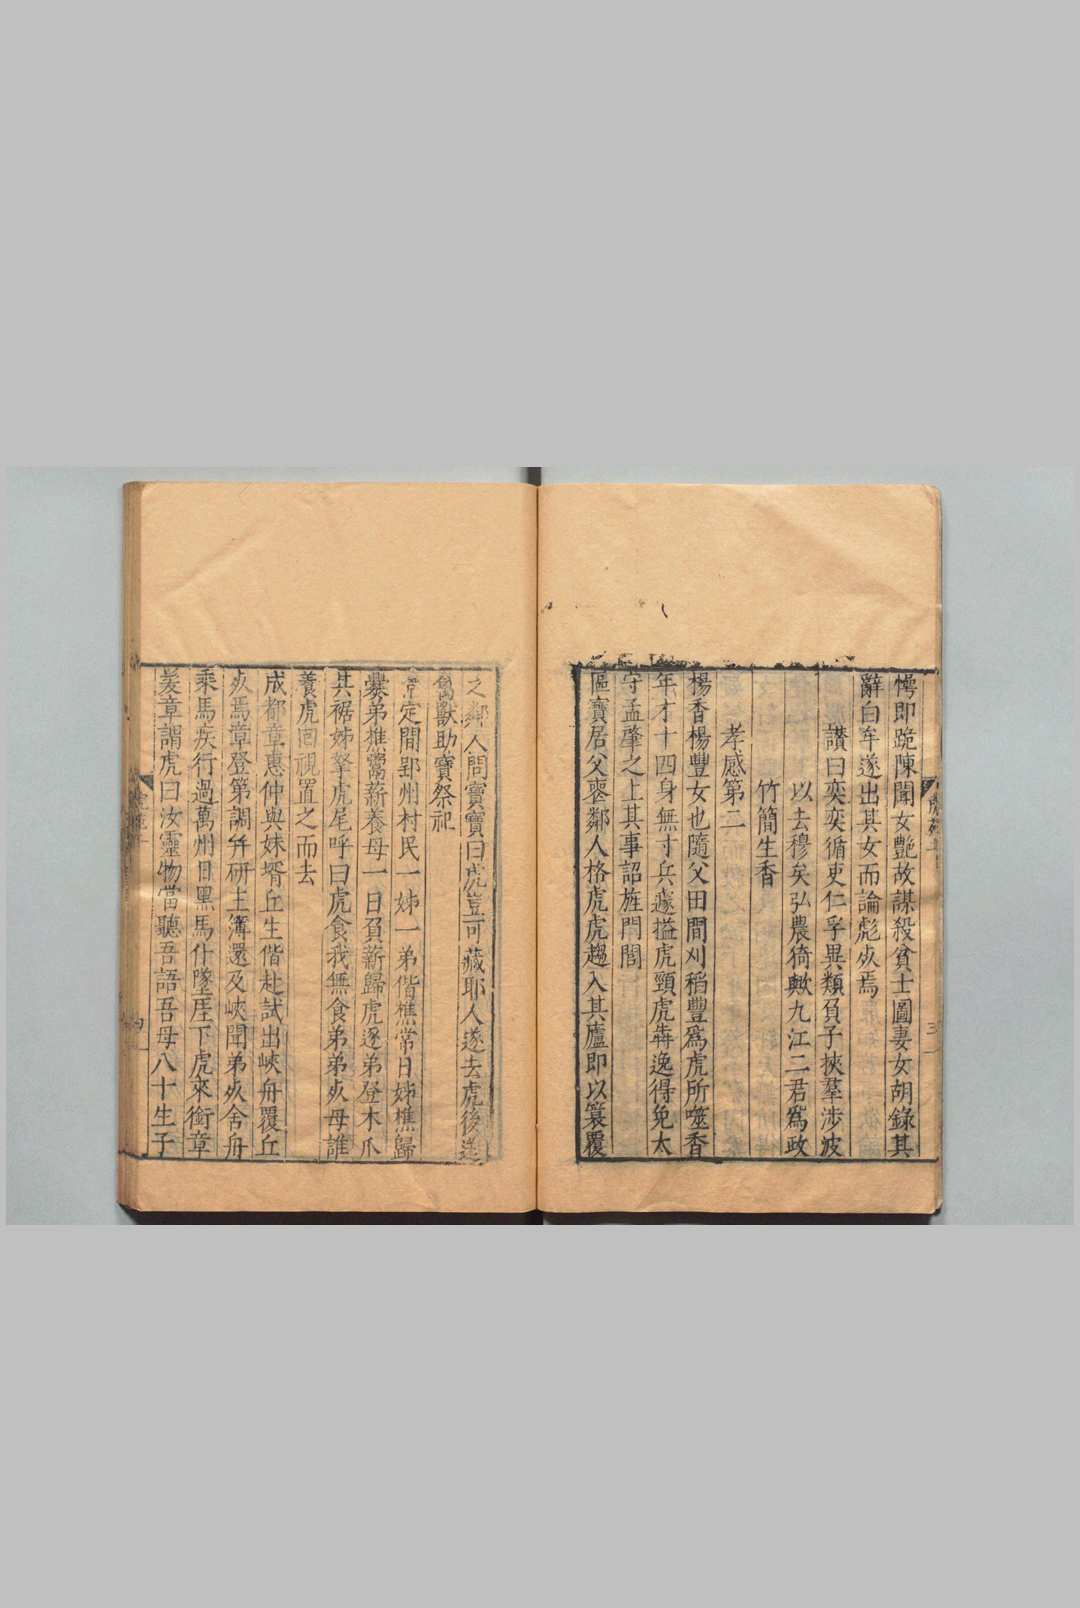 愕即跪陳聞女艷故謀殺貧士圖妻女胡錄其
辭白牟遂出其女而論彪㱙焉
讃曰奕奕循吏仁孚異類負子挾羣涉波
以去穆矣弘農猗歟九江二君爲政
竹簡生香
孝感第二
楊香楊豐女也隨父田間刈稻豐爲虎所噬香
年才十四身無寸兵遽搤虎頸虎犇逸得免太
守孟肇之上其事詔旌門閭
區寶居父䘮鄰人格虎虎趨入其廬即以簑覆
之鄰人問寶寶曰虎豈可藏耶人遂去虎後送
禽獸助寶祭祀
定間郢州村民一姊一弟偕樵常日姊樵歸
爨弟樵鬻薪養母一日負薪歸虎逐弟登木爪
其裾姊拏虎尾呼曰虎食我無食弟弟㱙母誰
養虎回視置之而去
成都章惠仲與妹壻丘生偕赴試出峽舟覆丘
㱙焉章登第調井研主簿還及峽聞弟㱙舍舟
乘馬疾行過萬州日黑馬什墜厓下虎來銜章
髮章謂虎曰汝靈物當聽吾語吾母八十生子
三
四